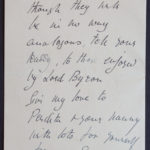 though they will
be in no way
analogous, tell your
Nanny, to those enjoyed
by Lord Byron
Give my love to
Perdita & your nanny
with lots for yourself